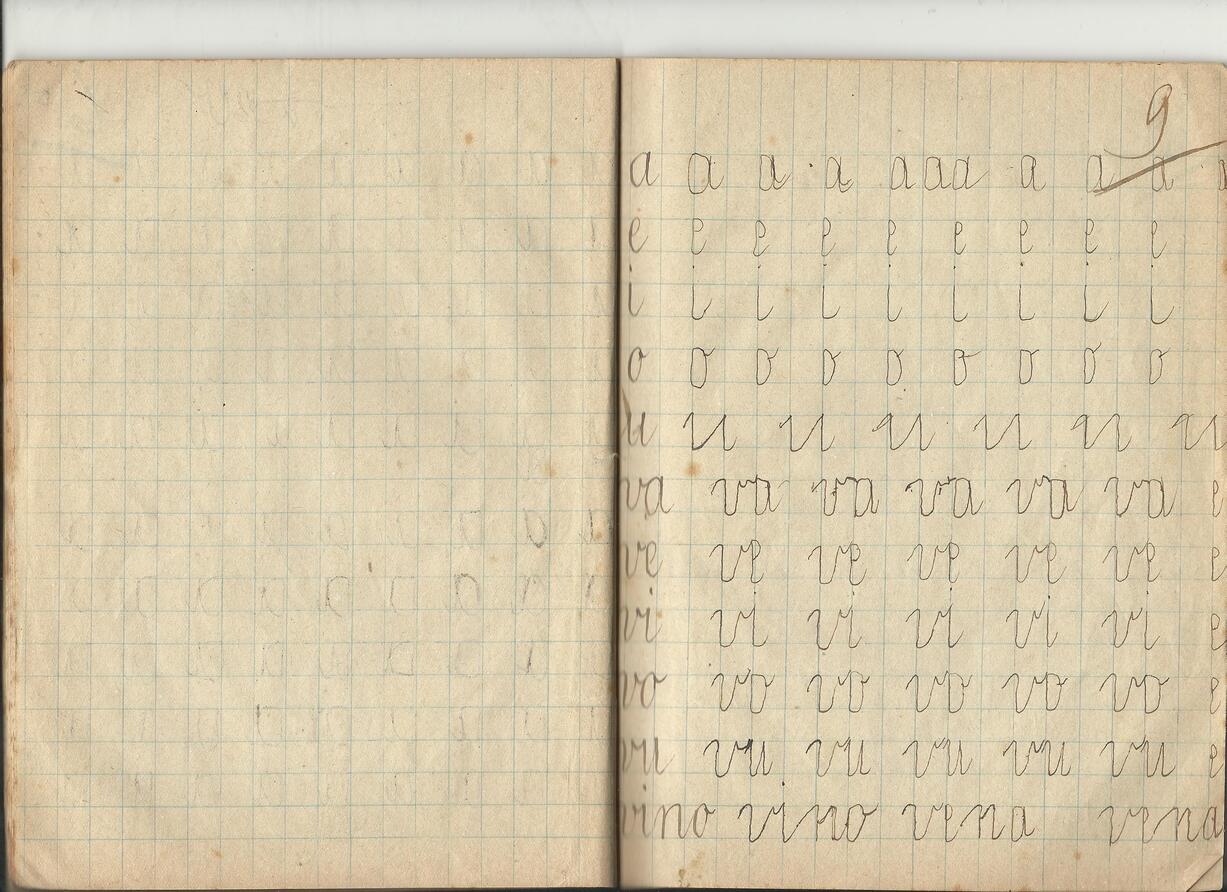 9
a a a a a a a a a a
e e e e e e e e e
i i i i i i i i i
o o o o o o o o o
u u u u u u u
va va va va va va e
ve ve ve ve ve ve e
vi vi vi vi vi vi e
vo vo vo vo vo vo e
vu vu vu vu vu vu e
vino vino vena vena